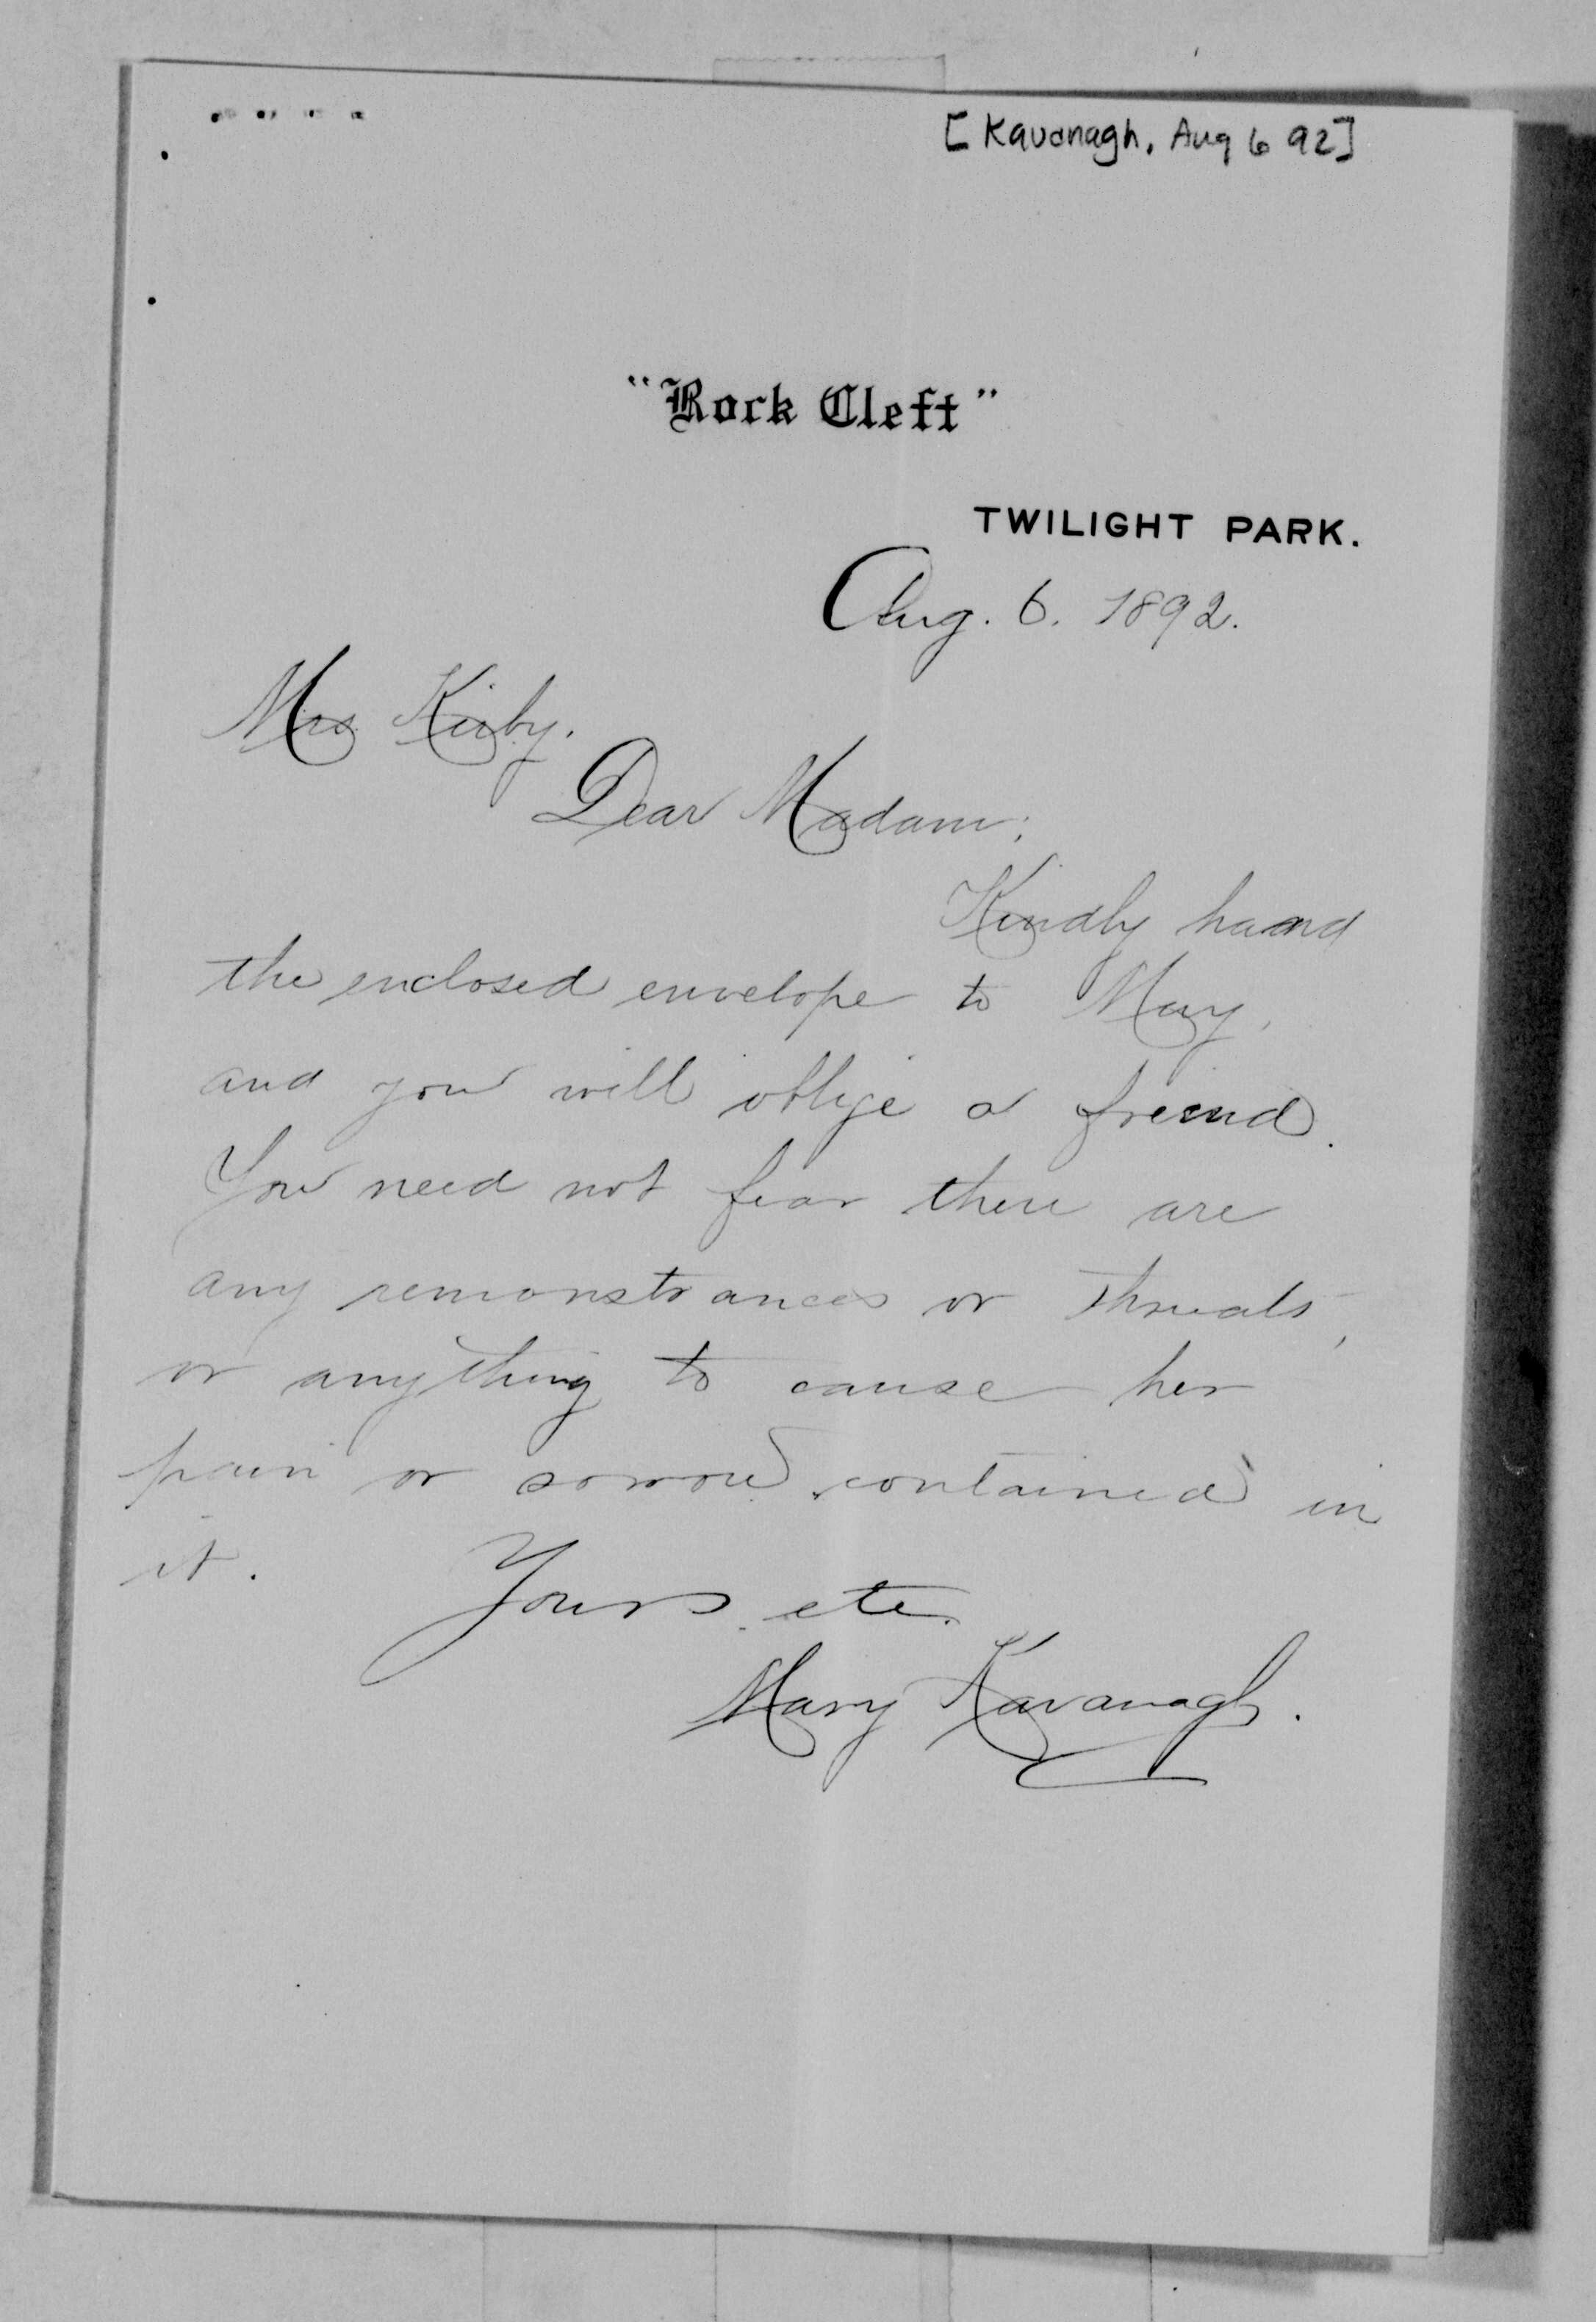 [Kavanagh, Aug 6 92]
"Rock Cleft"
TWILIGHT PARK.
Aug. 6. 1892.
Mrs Kirby.
Dear Madam;
Kindly hand
the enclosed envelope to May,
and you will oblige a freind.
You need not fear there are
any remonstrances or threats,
or anything to cause her
pain or sorrow contained in
it.
Yours etc.
Mary Kavanagh.